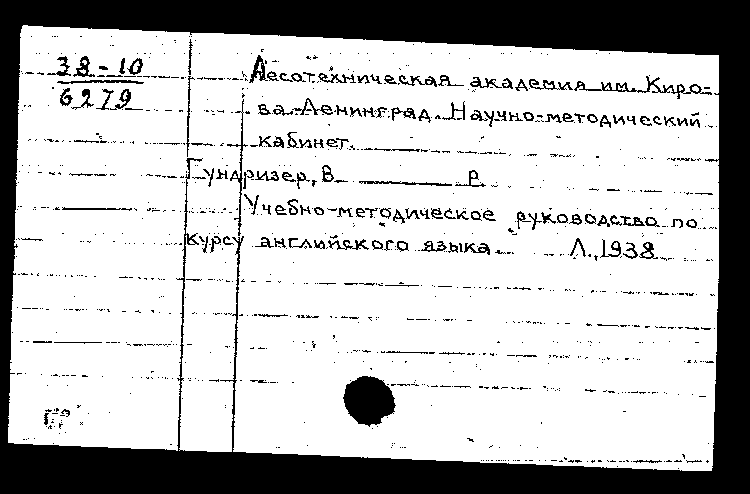 38-10
6279
Лесотехническая академия им. Киро=
ва.-Ленинград. Научно-методический
кабинет.
Гундризер, В. Р.
Учебно-методическое руководство по
курсу английского языка. Л., 1938